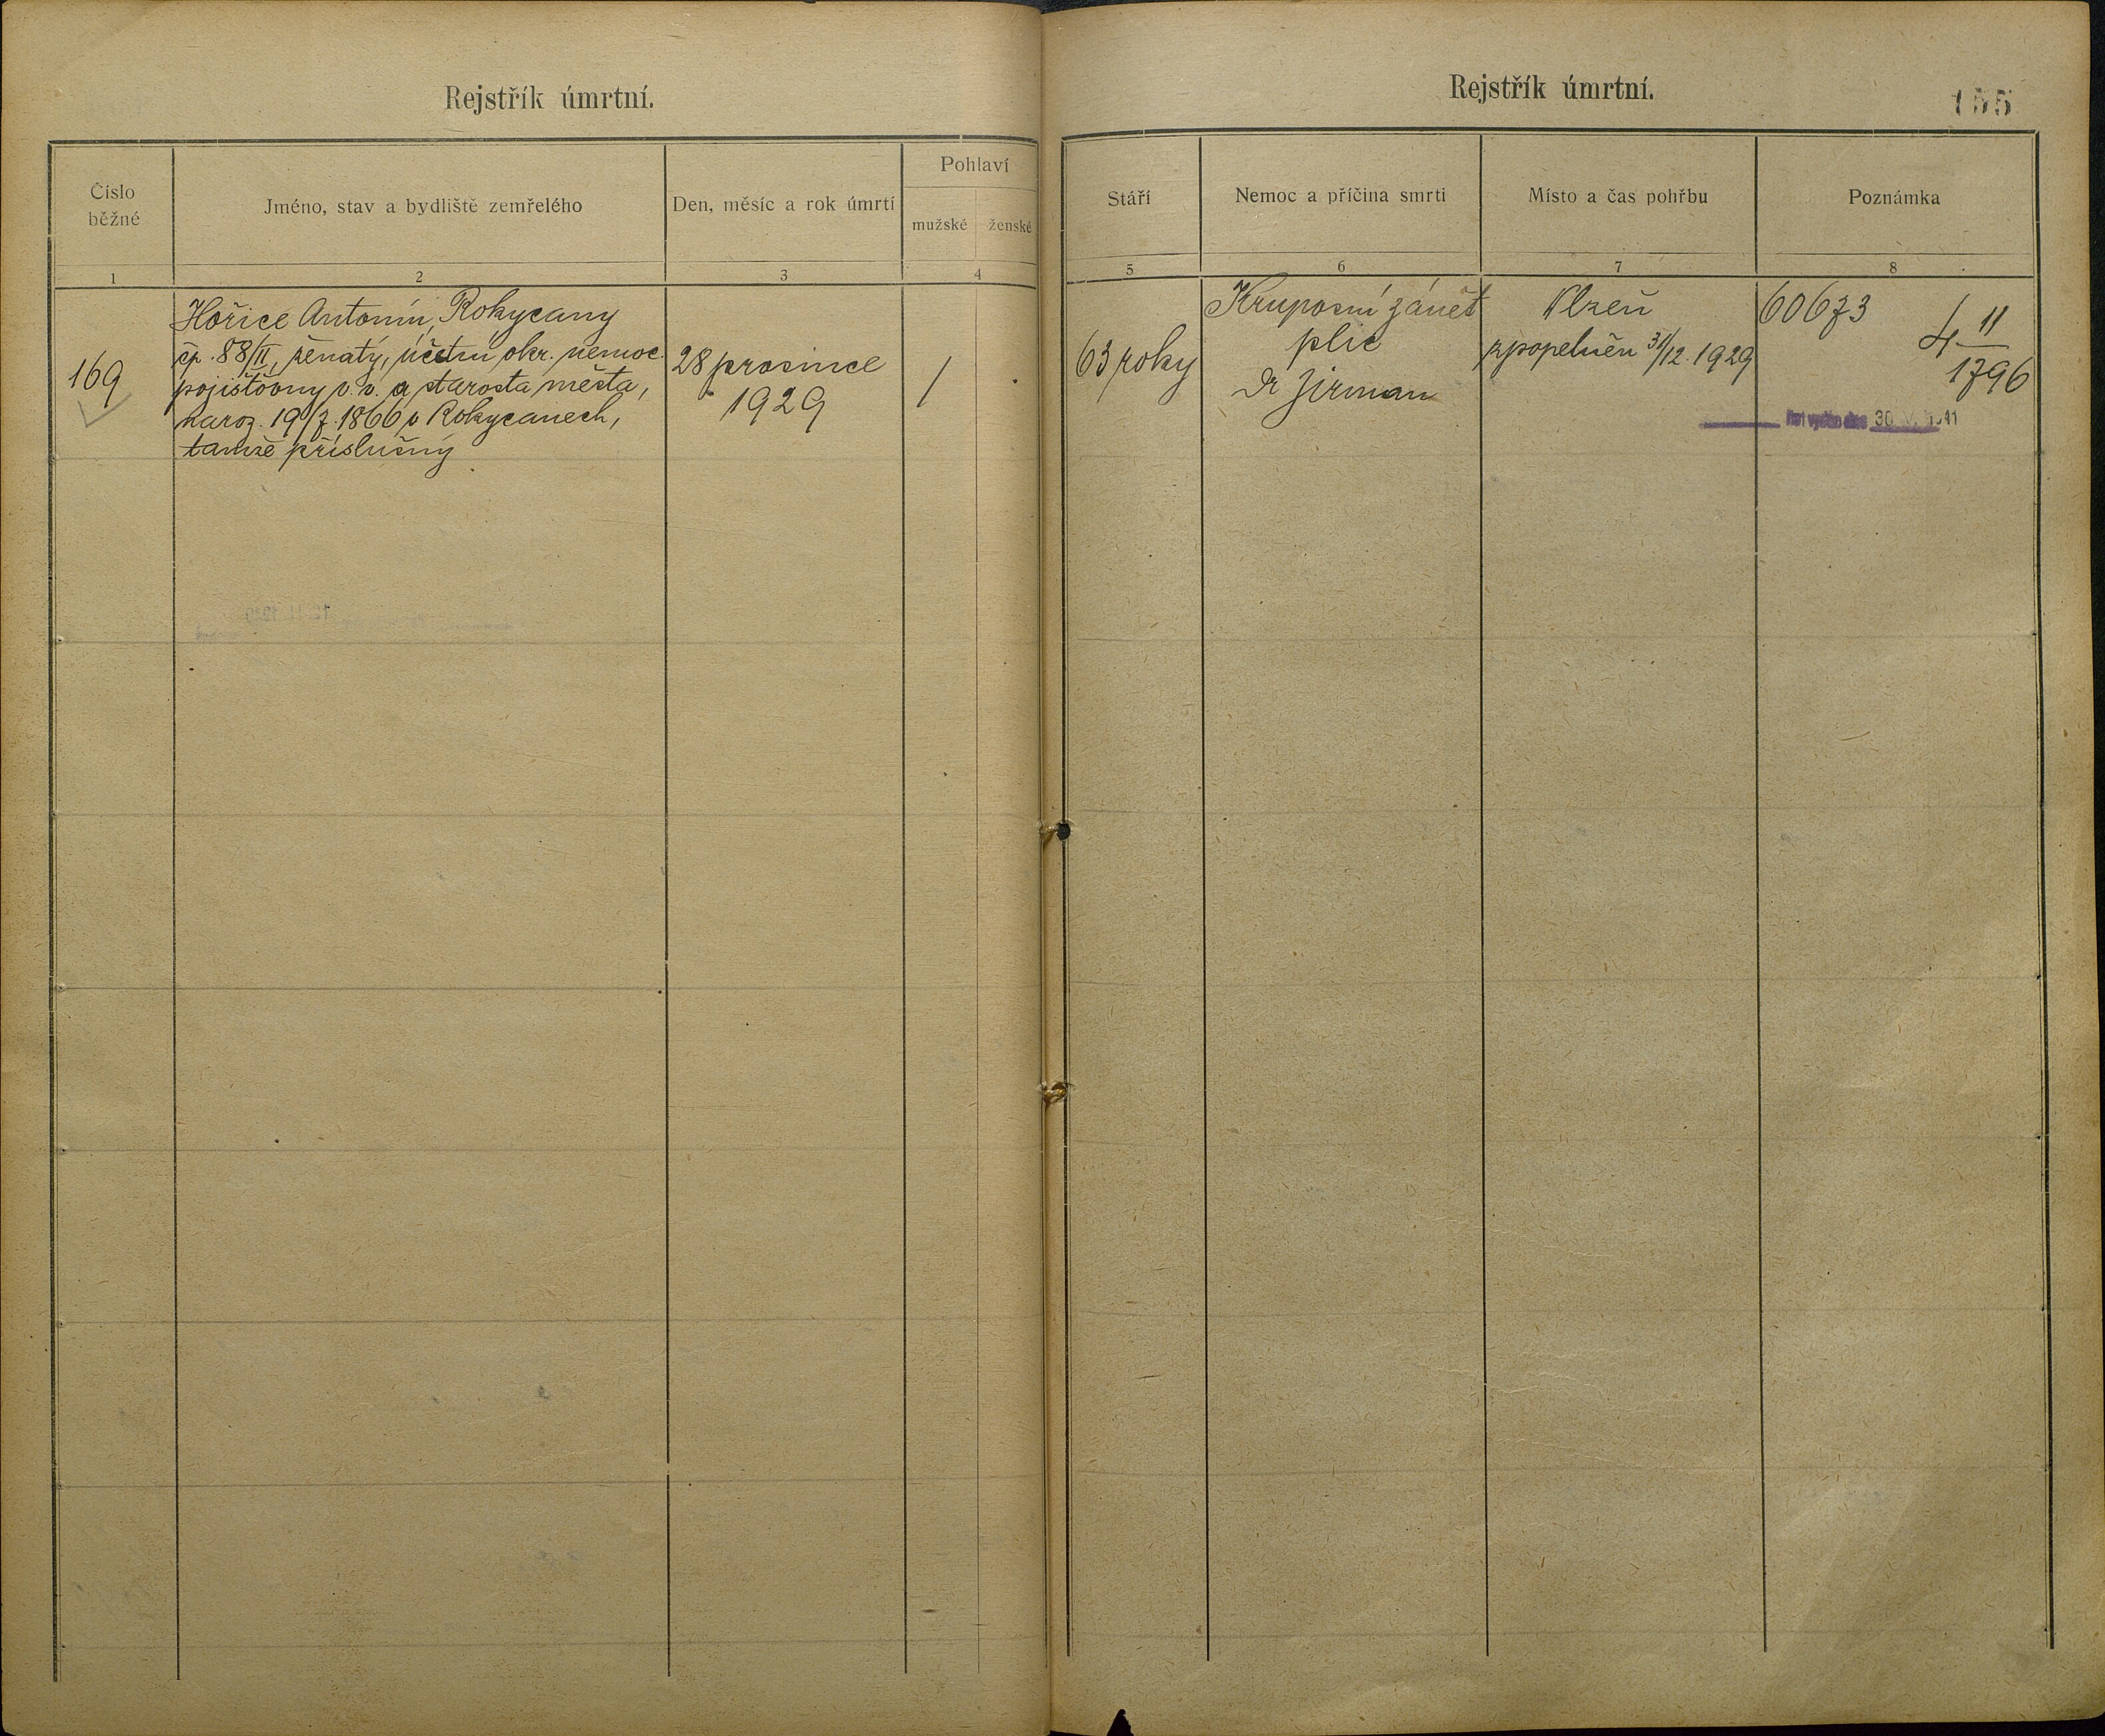 Rejstřík úmrtní.
Číslo běžné
Jméno, stav a bydliště zemřelého
Den, měsíc a rok úmrtí
Pohlaví
mužské
ženské
1
2
3
4
169
Hořice Antonín, Rokycany
čp. 88/II, ženatý, účetní okr. nemoc.
pojišťovny v. v. a starosta města,
naroz. 19/7. 1866 v Rokycanech,
tamže příslušný
28 prosince
1929
/
Rejstřík úmrtní.
155
Stáří
Nemoc a příčina smrti
Místo a čas pohřbu
Poznámka
5
6
7
8
63 roky
Kruposní zánět
plic
Dr Jirman
Plzeň
zpopelněn 31/12. 1929
60673
4 11
1796
30. 1941